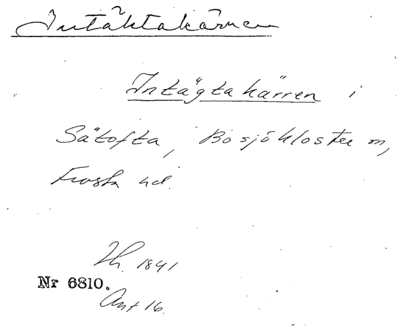 Intäktakärren
Intägtakärren i
Sätofta, Bosjökloster m,
Frosta hd.
Th. 1841
Nr 6810.
Ant 16.